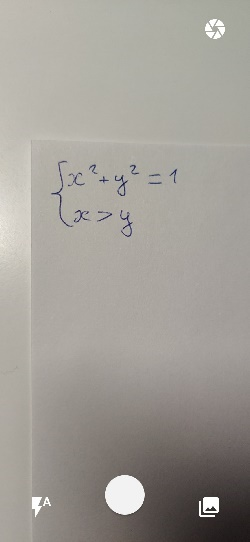 x² + y² = 1
x > y
A